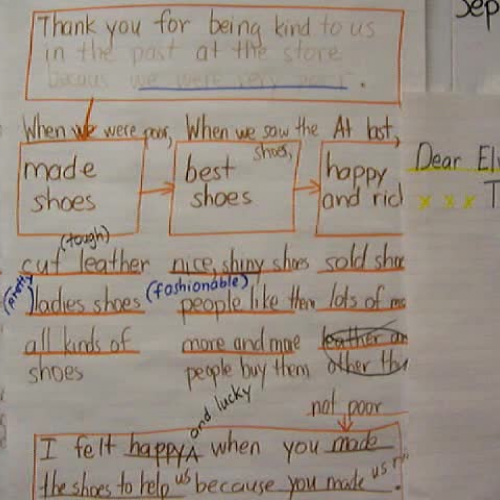 Sep
Thank you for being kind to us
in the past at the store
we were very poor.
When we were poor, When we saw the shoes, At last,
made shoes
best shoes
happy and
Dear
x x x T
(tough)
cut leather nice, shiny shoes sold
(pretty) ladies shoes (fashionable) people like them lots of
all kinds of shoes
more and more people buy them
other
not poor
I felt happy and lucky when you made
the shoes to help us because you made us